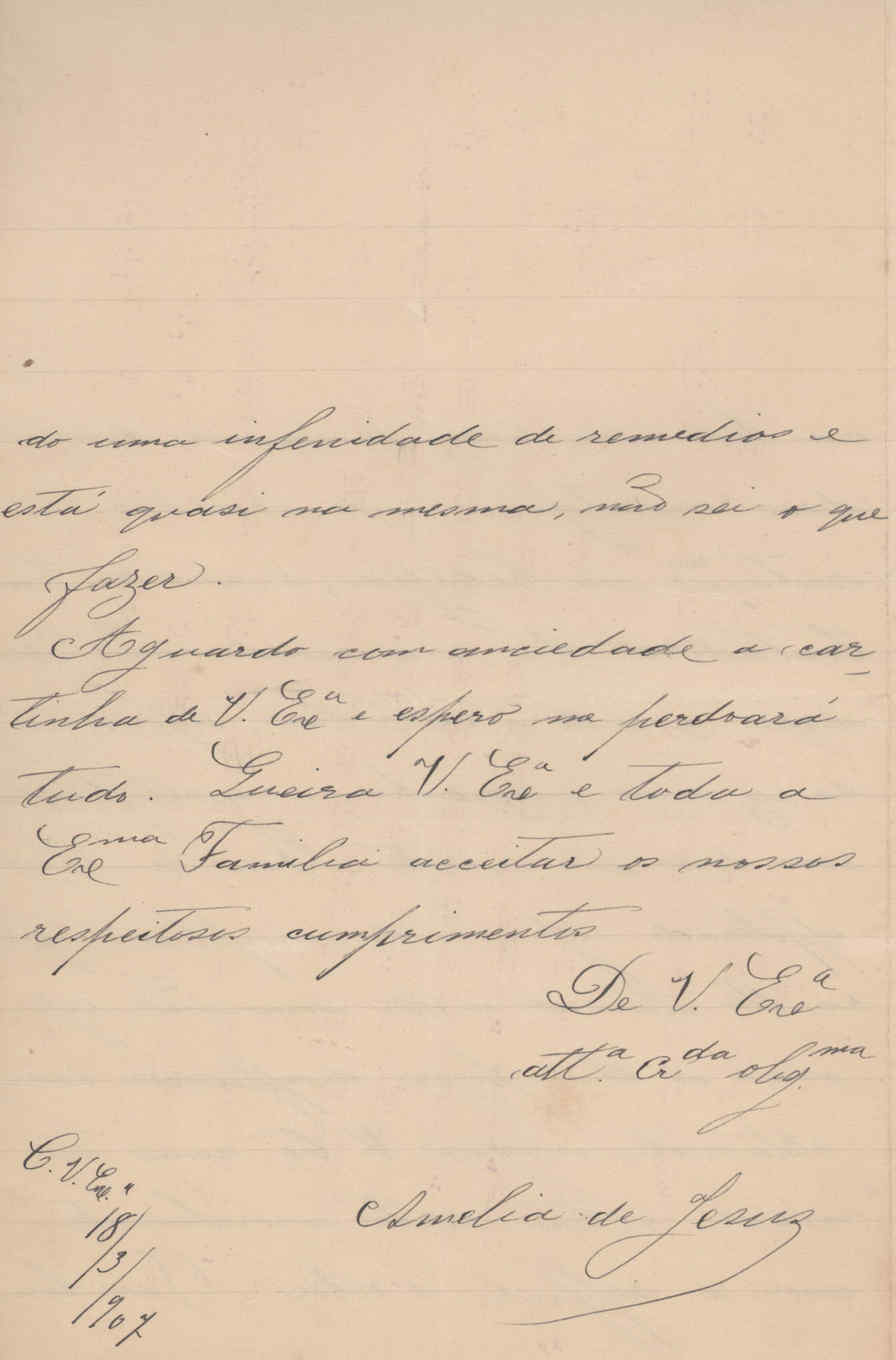 do uma infenidade de remedios e
está quasi na mesma, não sei o que
fazer.
Aguardo com anciedade a car
tinha de V. Exᵉª e espero me perdoará
tudo. Queira V. Exᵉª e toda a
Exᵉᵐᵃ Familia acceitar os nossos
respeitosos cumprimentos
De V. Exᵉª
att.ª Crᵈᵃ obg.ᵐᵃ
C. V. Exᵉ.ª
18/
/3/
/907
Amelia de Jesus